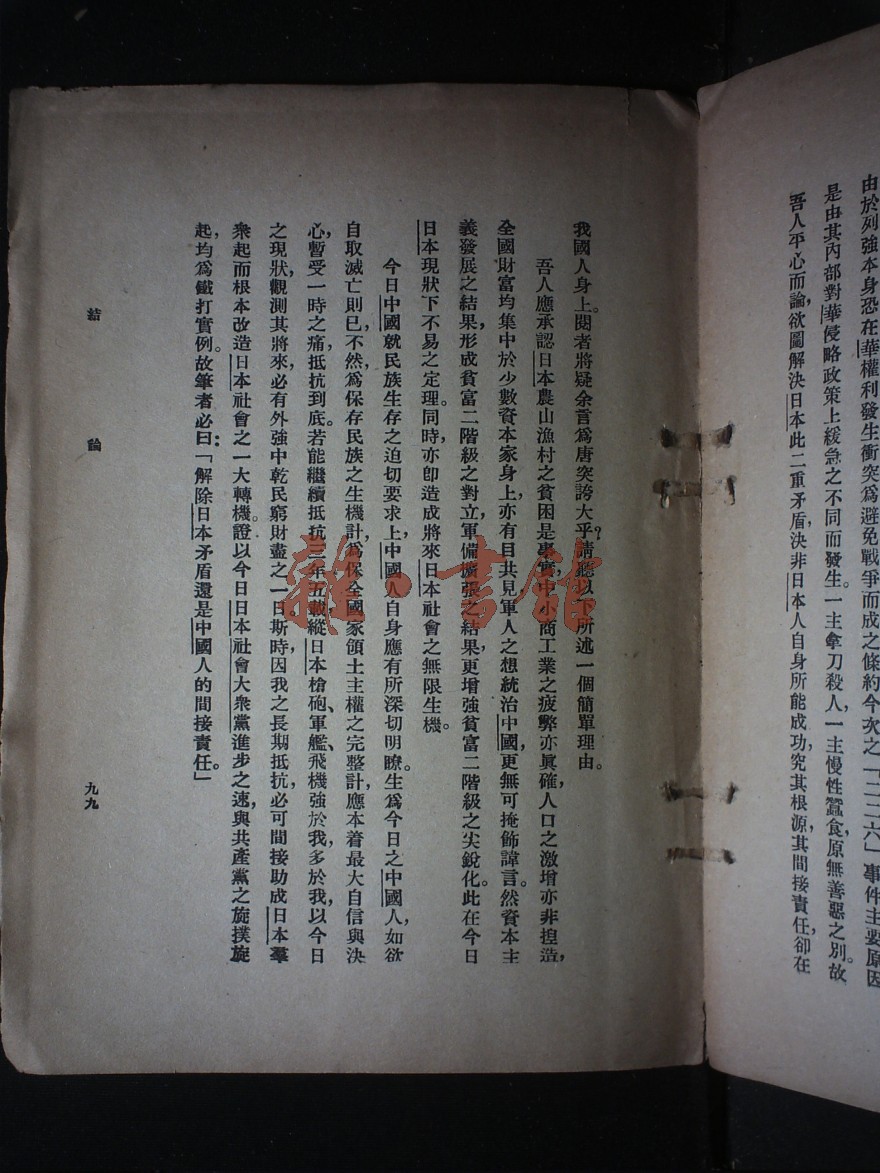 由於列強本身恐在華權利發生衝突爲避免戰爭而成之條約今次之「二二六」事件主要原因
是由其內部對華侵略政策上緩急之不同而發生。一主拿刀殺人,一主慢性蠶食,原無善惡之別。故
吾人平心而論,欲圖解決日本此二重矛盾決非日本人自身所能成功究其根源,其間接責任,卻在
我國人身上。閱者將疑余言爲唐突誇大乎?請聽以下所述一個簡單理由。
吾人應承認日本農山漁村之貧困是事實,中小商工業之疲弊亦眞確,人口之激增亦非揑造,
全國財富均集中於少數資本家身上,亦有目共見軍人之想統治中國,更無可掩飾諱言。然資本主
義發展之結果,形成貧富二階級之對立,軍備擴張之結果,更增強貧富二階級之尖銳化。此在今日
日本現狀下不易之定理。同時,亦卽造成將來日本社會之無限生機。
今日中國就民族生存之迫切要求上,中國人自身應有所深切明瞭。生爲今日之中國人,如欲
自取滅亡則已,不然,爲保存民族之生機計,爲保全國家領土主權之完整計,應本着最大自信與決
心,暫受一時之痛,抵抗到底。若能繼續抵抗三年五載,縱日本槍砲、軍艦、飛機強於我,多於我,以今日
之現狀,觀測其將來,必有外強中乾民窮財盡之一日。斯時,因我之長期抵抗,必可間接助成日本羣
衆起而根本改造日本社會之一大轉機。證以今日日本社會大衆黨進步之速,與共產黨之旋撲旋
起,均爲鐵打實例。故筆者必曰:「解除日本矛盾還是中國人的間接責任。」
結論
九九
雜·書館